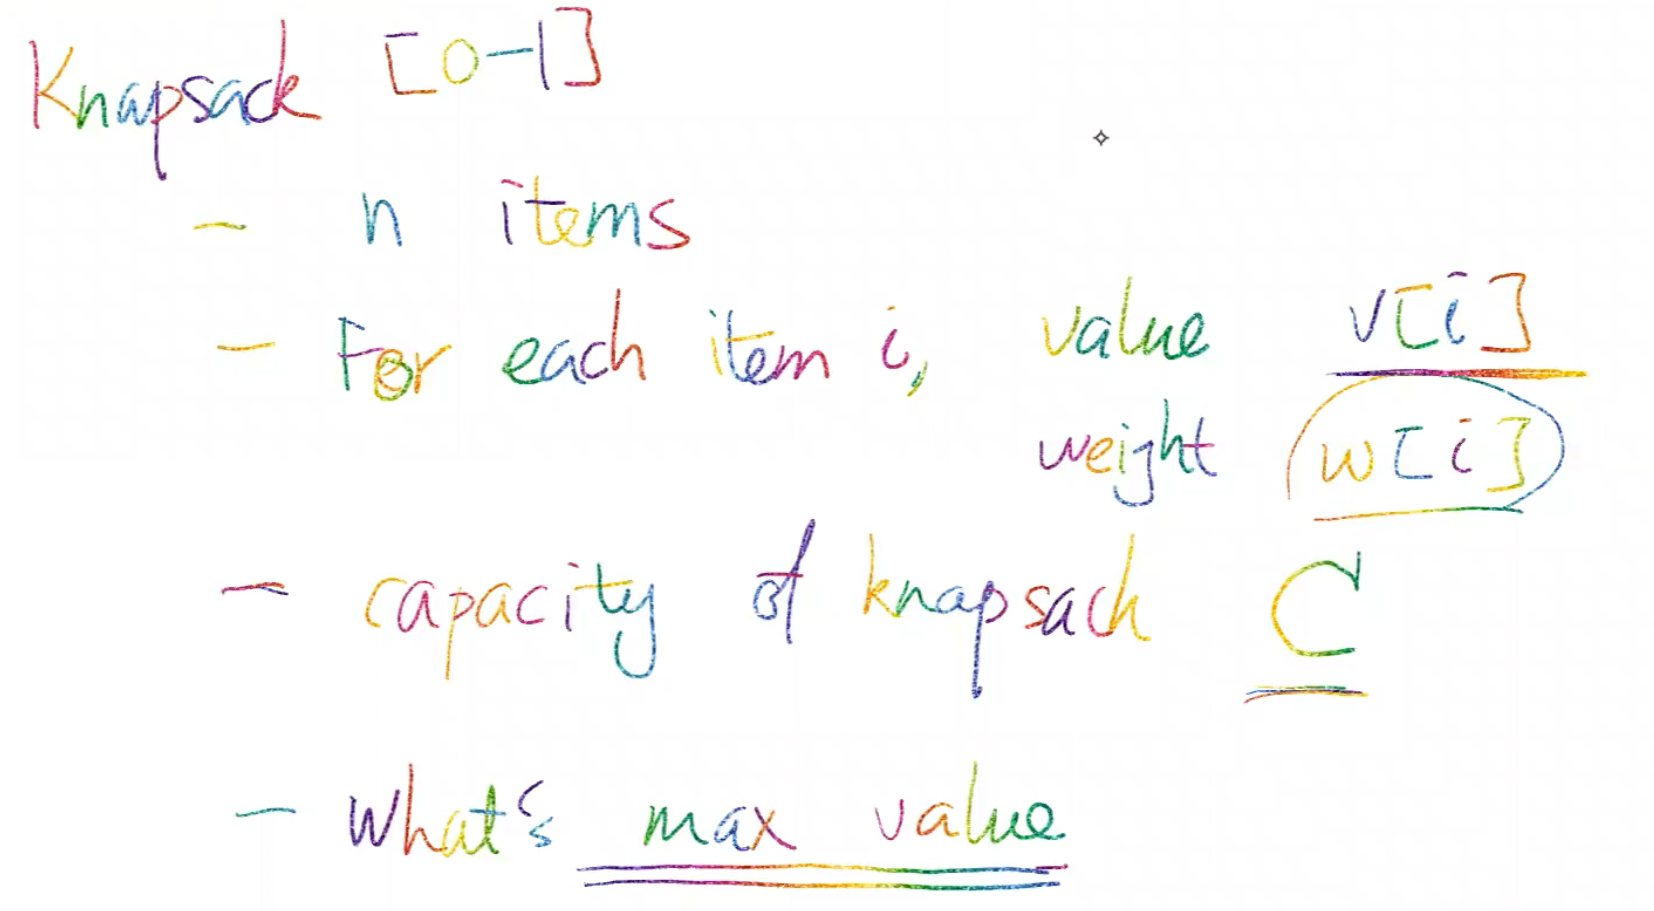 Knapsack [0-1]
- n items
- For each item i, value v[i]
weight w[i]
- capacity of knapsack C
- What's max value